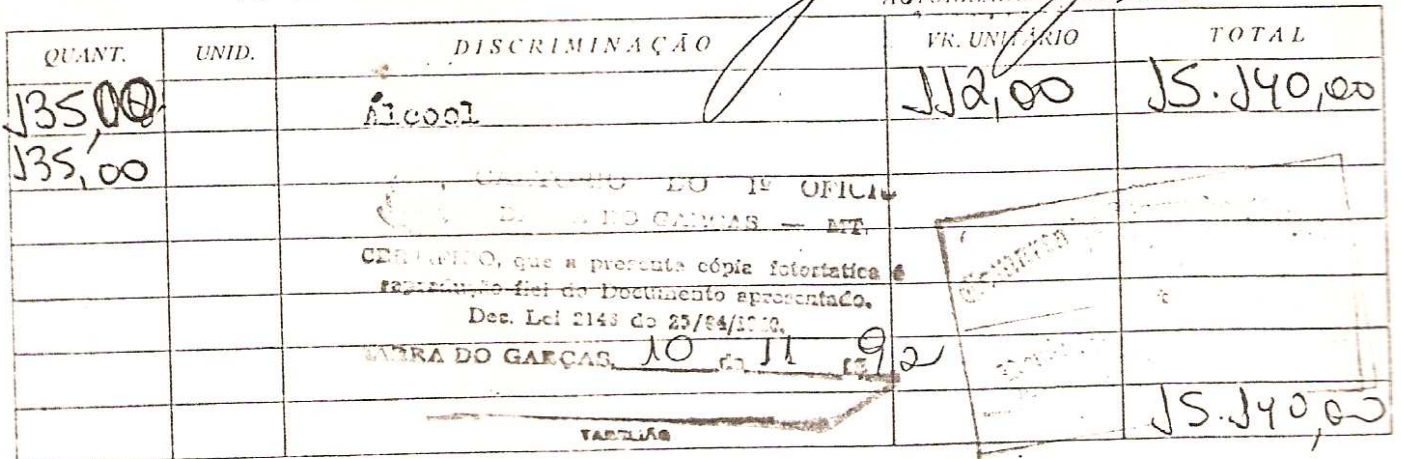 QUANT. UNID. DISCRIMINAÇÃO VR. UNITÁRIO TOTAL
135,00 Álcool 112,00 15.140,00
135,00
CARTORIO DO 1º OFICIO
DO GARÇAS — MT.
CERTIFICO, que a presente cópia fotortatica é
reprodução fiel do Documento apresentado.
Dec. Lei 2148 do
BARRA DO GARÇAS, 10 de 11 de 92
TABELIÃO
15.140,00